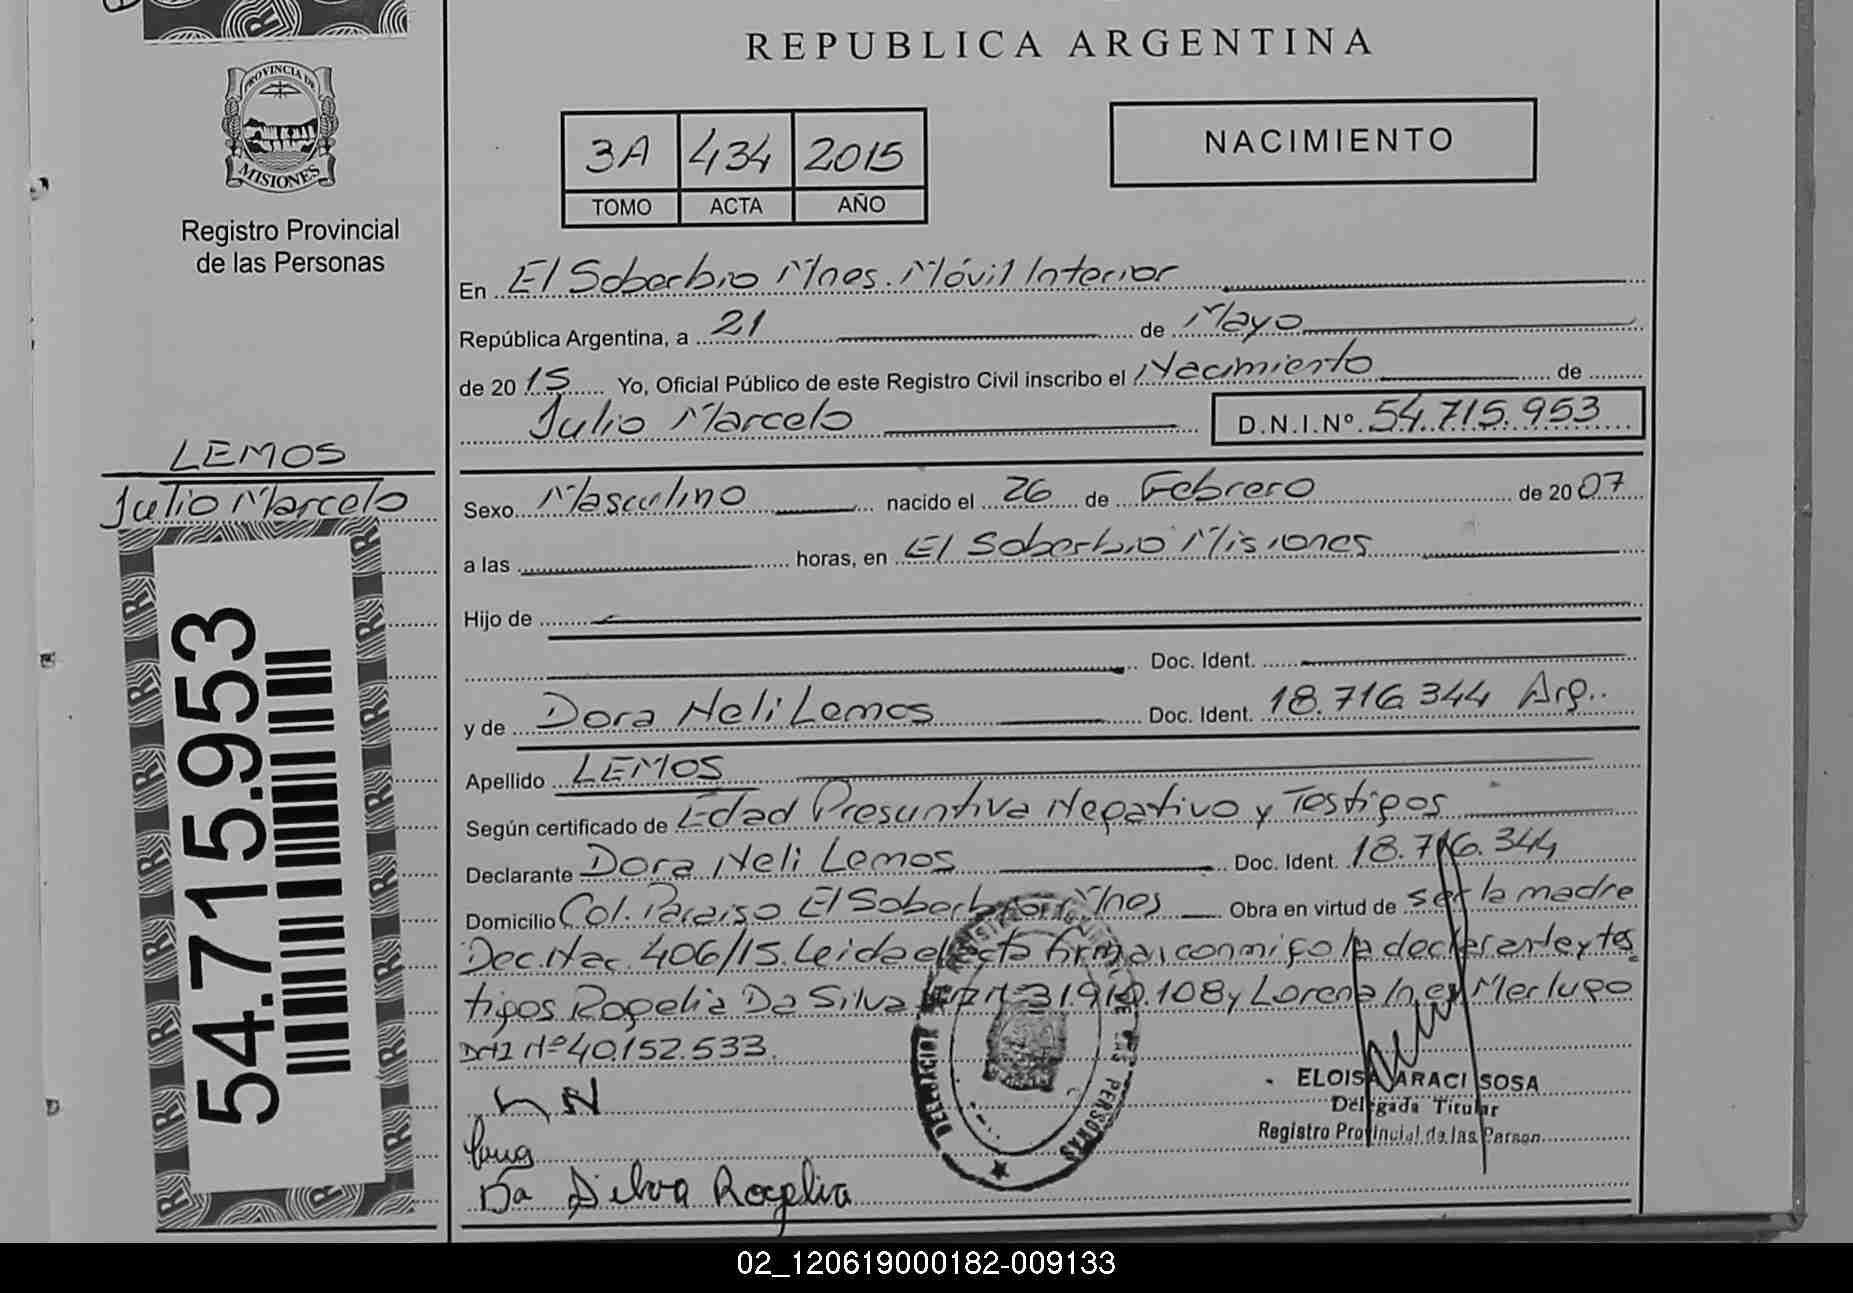 REPUBLICA ARGENTINA
PROVINCIA DE
MISIONES
Registro Provincial
de las Personas
3A 434 2015
TOMO ACTA AÑO
NACIMIENTO
En El Soberbio Mnes. Móvil Interior
República Argentina, a 21 de Mayo
de 2015 Yo, Oficial Público de este Registro Civil inscribo el Nacimiento de
Julio Marcelo D.N.I.Nº. 54.715.953
LEMOS
Julio Marcelo
54.715.953
Sexo Masculino nacido el 26 de Febrero de 2007
a las horas, en El Soberbio Misiones
Hijo de
Doc. Ident.
y de Dora Neli Lemos Doc. Ident. 18.716.344 Arg.
Apellido LEMOS
Según certificado de Edad Presuntiva Negativo y Testigos
Declarante Dora Neli Lemos Doc. Ident. 18.716.344
Domicilio Col. Paraiso El Soberbio Mnes Obra en virtud de ser la madre
Dec. Nac. 406/15. Leida el acta firman conmigo la declarante y tes
tigos Rogelia Da Silva DNI Nº 31.910.108 y Lorena Ines Merlugo
DNI Nº 40.152.533.
ELOISA ARACI SOSA
Delegada Titular
Registro Provincial de las Person.
DELEGACION
DE LAS PERSONAS
Da Silva Rogelia
02_120619000182-009133